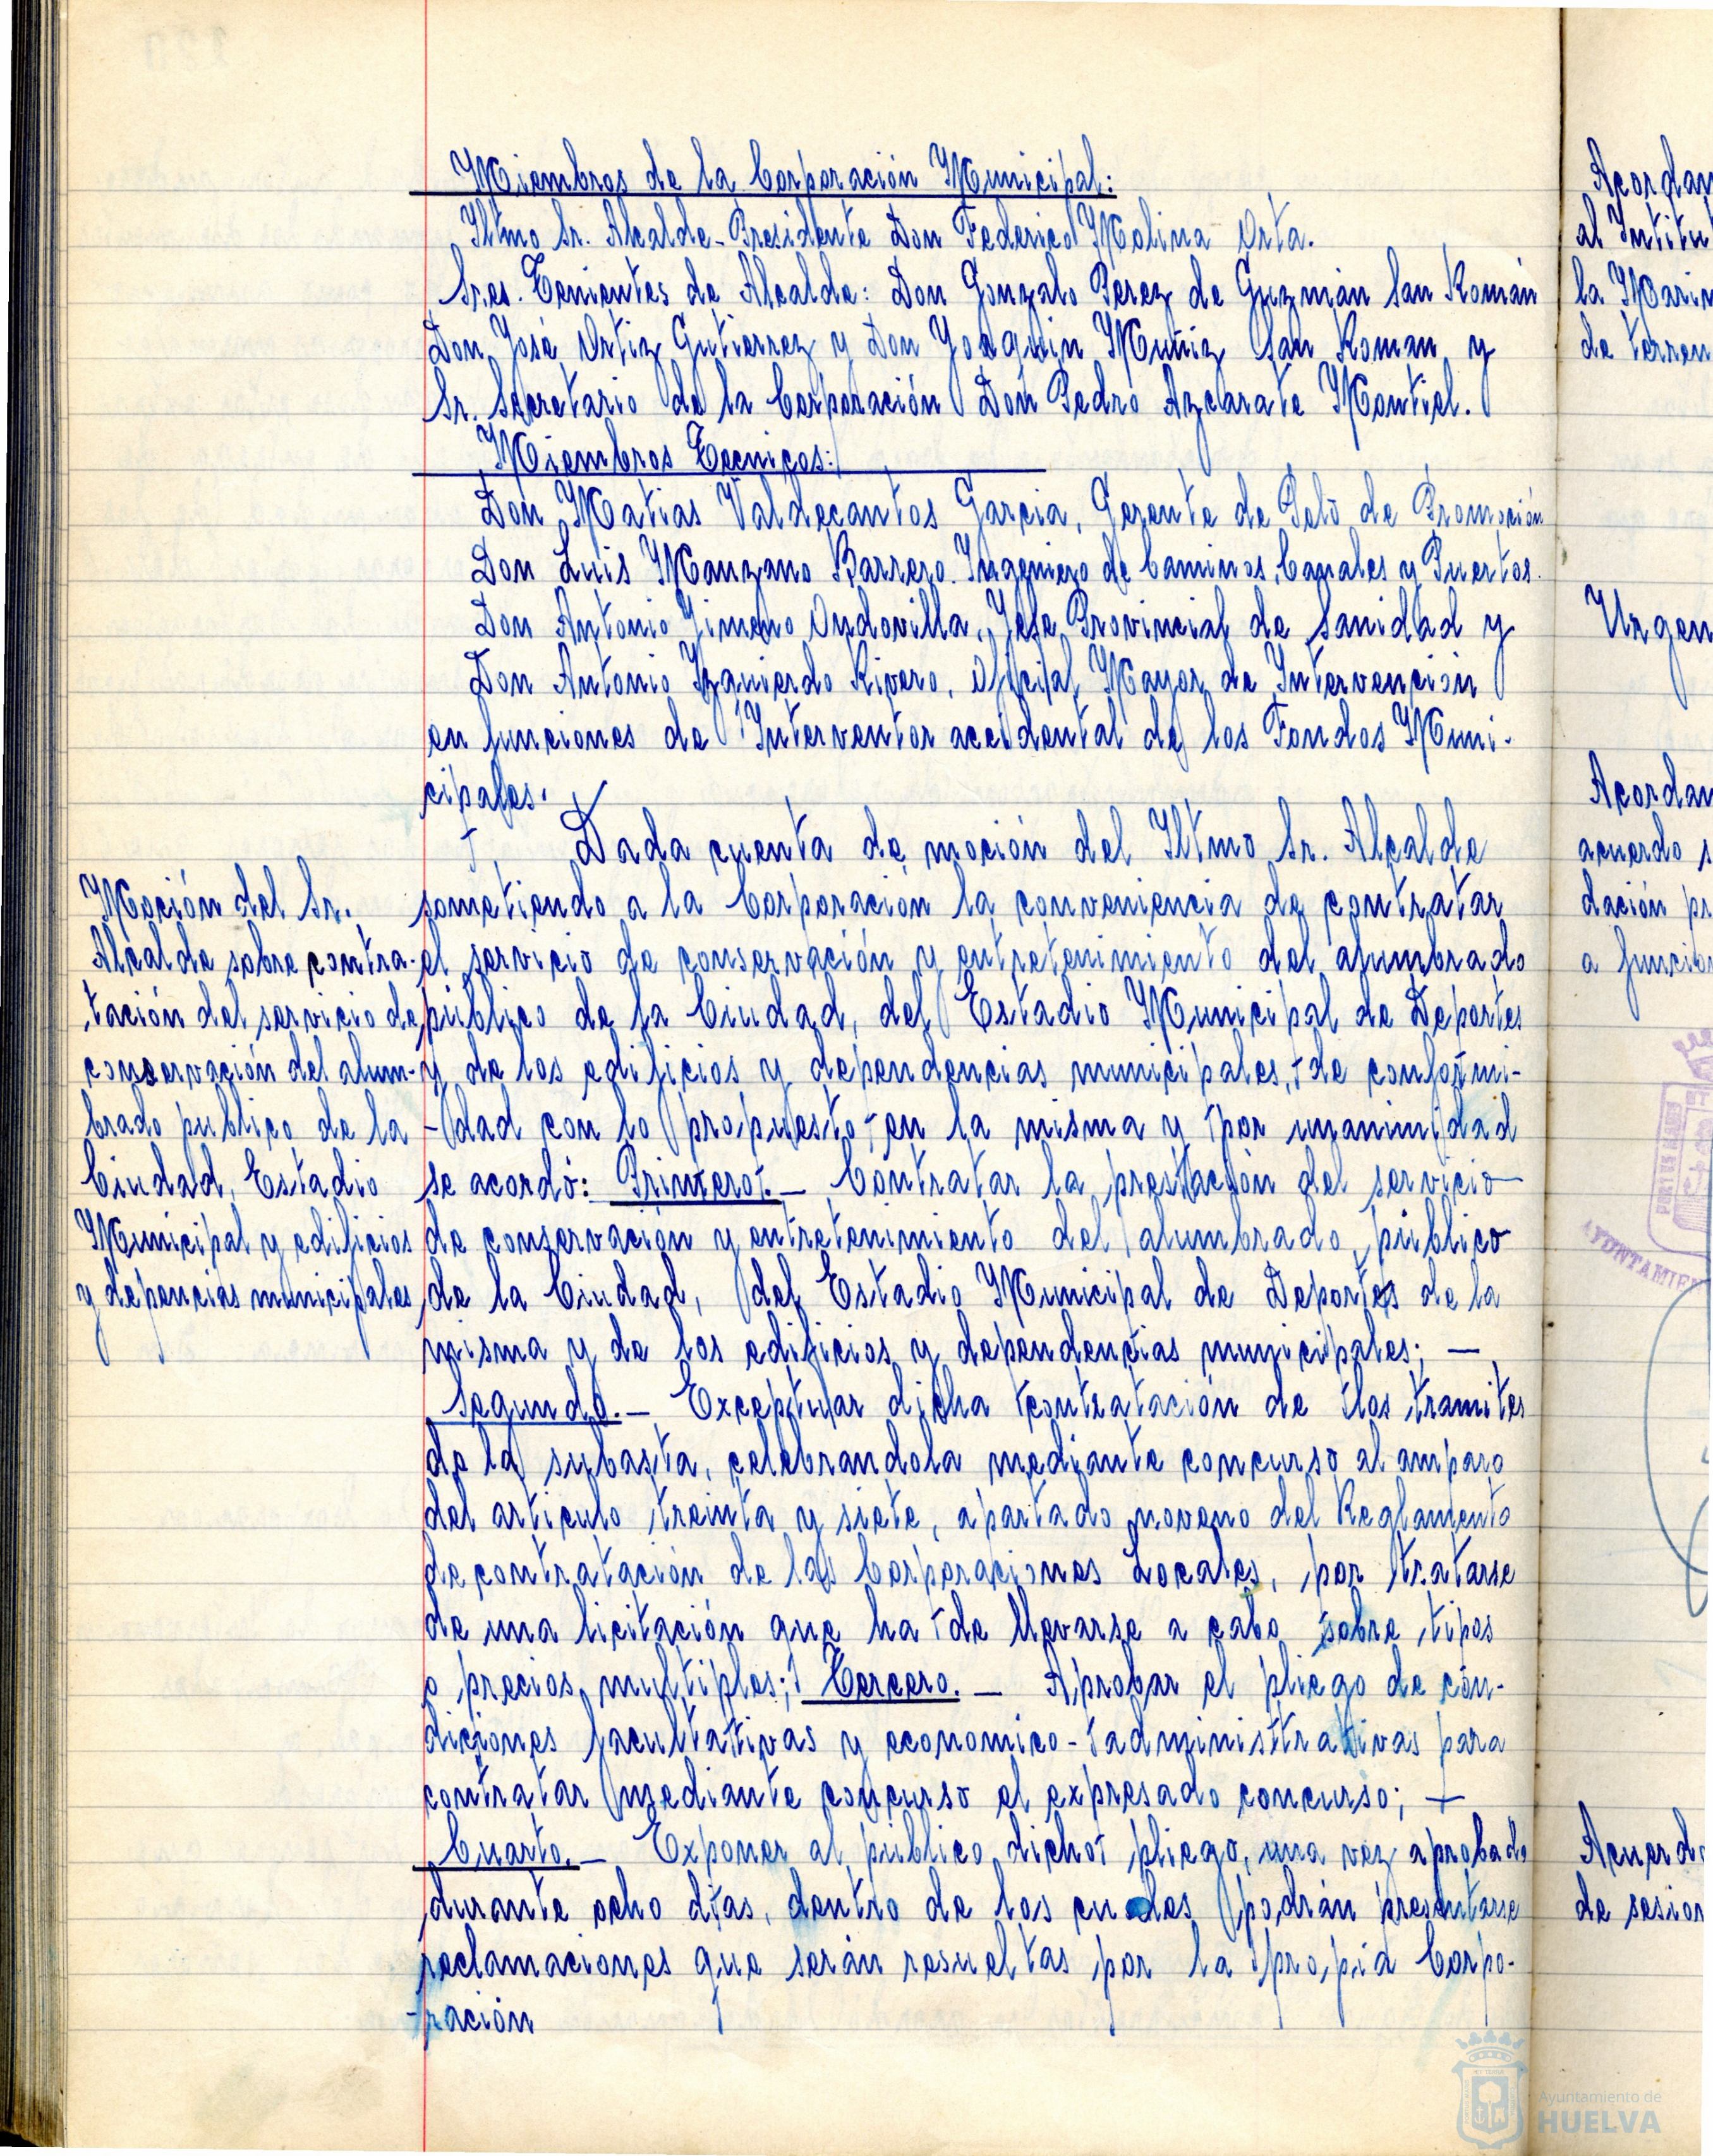 Miembros de la Corporación Municipal:
Iltmo Sr. Alcalde-Presidente Don Federico Molina Orta.
Sres. Tenientes de Alcalde: Don Gonzalo Perez de Guzmán San Román
Don José Ortiz Gutierrez y Don Joaquin Muñiz San Roman y
Sr. Secretario de la Corporación Don Pedro Azcarate Montiel.
Miembros Tecnicos:
Don Matias Valdecantos Garcia, Gerente de de Promoción
Don Luis Manzano Barrero. Ingeniero de Caminos, Canales y Puertos.
Don Antonio Jimeno Ondovilla, Jefe Provincial de Sanidad y
Don Antonio Izquierdo Rivero, Oficial Mayor de Intervención
en funciones de Interventor accidental de los Fondos Muni-
cipales.
Dada cuenta de moción del Iltmo Sr. Alcalde
sometiendo a la Corporación la conveniencia de contratar
el servicio de conservación y entretenimiento del alumbrado
público de la Ciudad, del Estadio Municipal de Deportes
y de los edificios y dependencias municipales, de conformi-
-dad con lo propuesto en la misma y por unanimidad
se acordó: Primero.- Contratar la prestación del servicio
de conservación y entretenimiento del alumbrado público
de la Ciudad, del Estadio Municipal de Deportes de la
misma y de los edificios y dependencias municipales; —
Segundo.- Exceptuar dicha contratación de los tramites
de la subasta, celebrandola mediante concurso al amparo
del articulo treinta y siete, apartado noveno del Reglamento
de contratación de las Corporaciones Locales, por tratarse
de una licitación que ha de llevarse a cabo sobre tipos
o precios multiples; Tercero. - Aprobar el pliego de con-
diciones facultativas y economico-administrativas para
contratar mediante concurso el expresado concurso; —
Cuarto.- Exponer al público dicho pliego, una vez aprobado
durante ocho días, dentro de los cuales podrán presentarse
reclamaciones que serán resueltas por la propia Corpo-
-ración
Moción del Sr.
Alcalde sobre contra-
tación del servicio de
conservación del alum-
brado publico de la
Ciudad, Estadio
Municipal y edificios
y depencias municipales
Acordan
al Intitu
la Marin
de terren
Urgen
Acordan
acuerdo s
dación pr
a funcio
AYUNTAMIEN
Acuerdo
de sesion
Ayuntamiento de
HUELVA